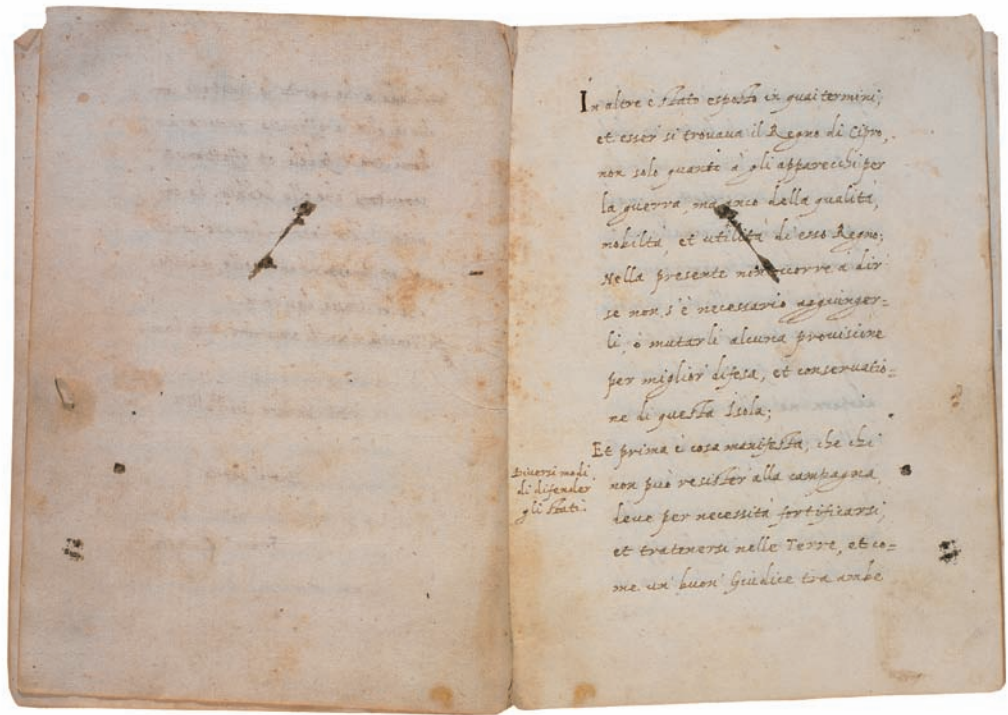 In altre è stato esposto in quai termini,
et esser si trovava il Regno di Cipro,
non solo quanto à gli apparecchi per
la guerra, ma anco della qualità,
nobiltà, et utilità di esso Regno;
Nella presente non occorre à dir
se non s'è necessario aggiunger=
li, ò mutarli alcuna provisione
per miglior difesa, et conservatio=
ne di questa Isola;
Et prima è cosa manifesta, che chi
Diversi modi
di difender
gli stati.
non può resister alla campagna
deve per necessità fortificarsi,
et tratenersi nelle Terre, et co=
me un buon Giudice tra ambe